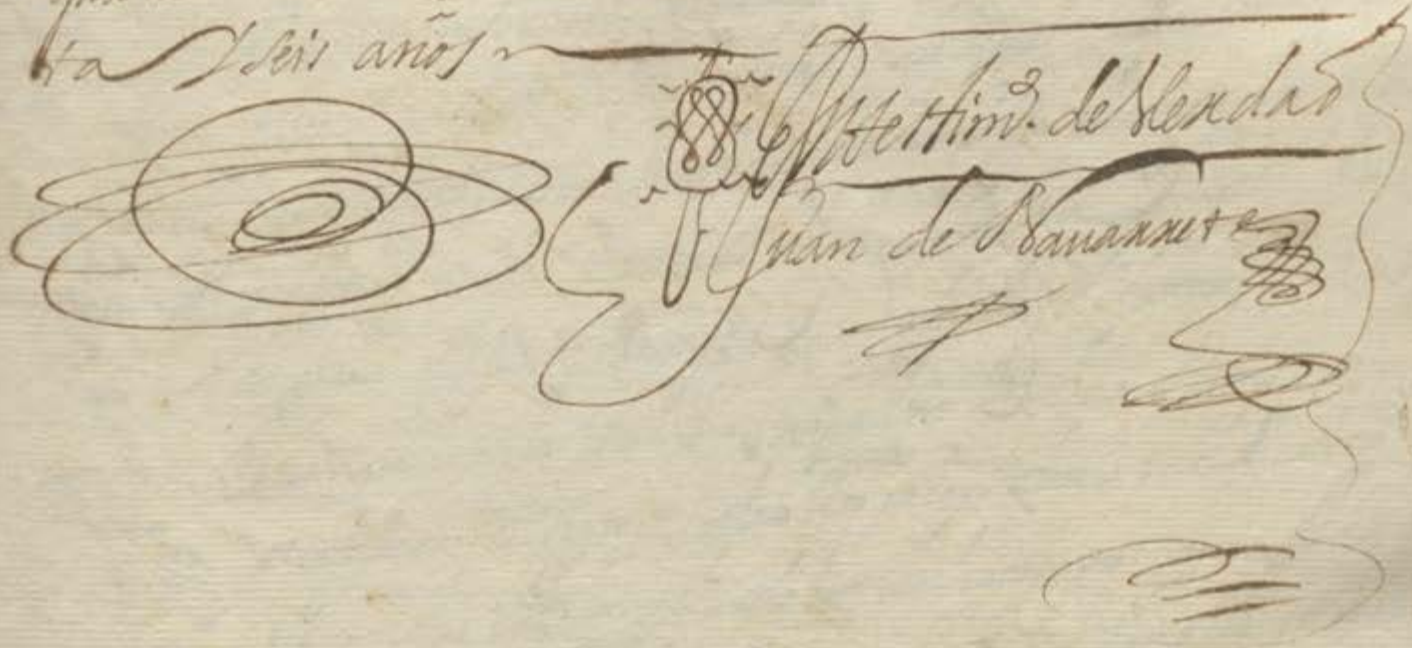 ta y seis años
En testim.º de verdad
Juan de Navarrete